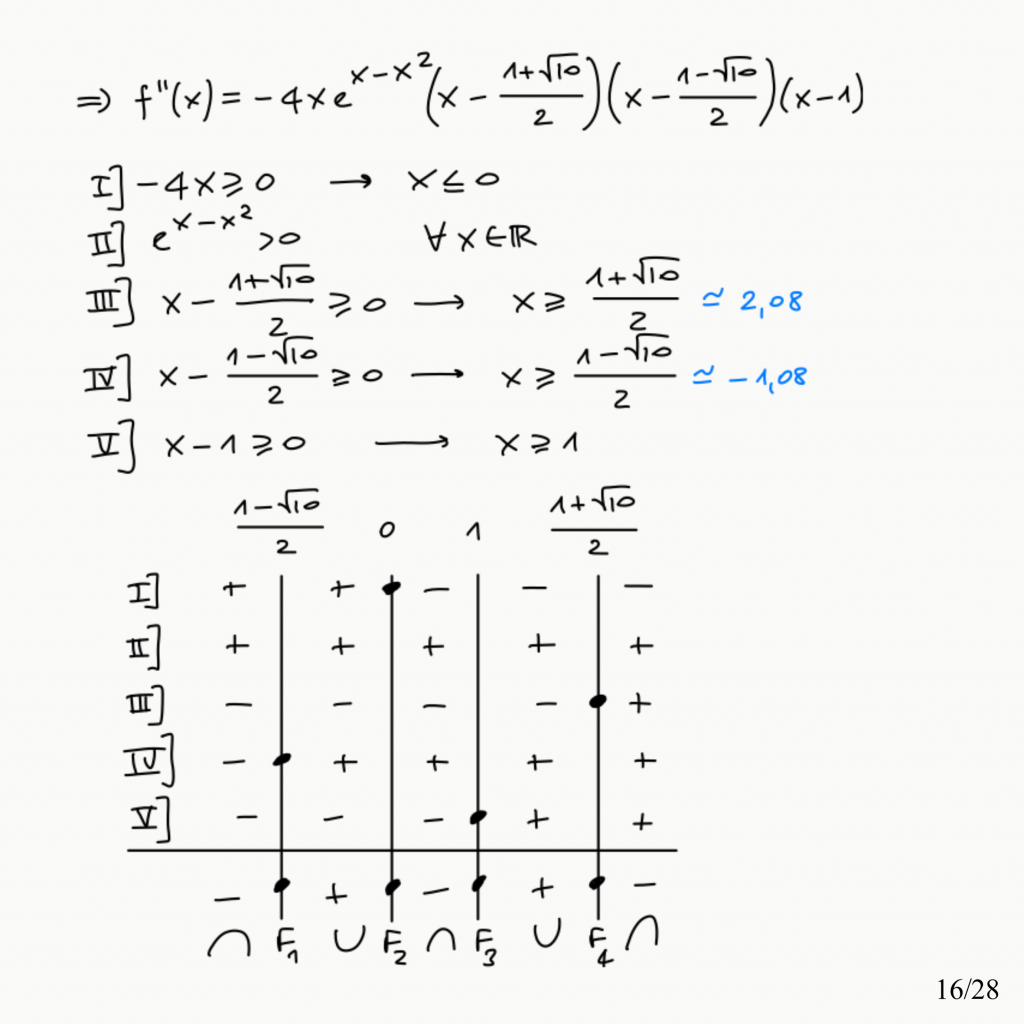 ⇒ f"(x) = -4xe^(x-x²) (x - (1+√10)/2) (x - (1-√10)/2) (x-1)
I] -4x ⩾ 0 → x ≤ 0
II] e^(x-x²) > 0 ∀ x ∈ ℝ
III] x - (1+√10)/2 ⩾ 0 → x ⩾ (1+√10)/2 ≃ 2,08
IV] x - (1-√10)/2 ⩾ 0 → x ⩾ (1-√10)/2 ≃ -1,08
V] x - 1 ⩾ 0 → x ⩾ 1
(1-√10)/2 0 1 (1+√10)/2
I] + + • - - -
II] + + + + +
III] - - - - • +
IV] - • + + + +
V] - - - • + +
- • + • - • + • -
∩ F₁ ∪ F₂ ∩ F₃ ∪ F₄ ∩
16/28